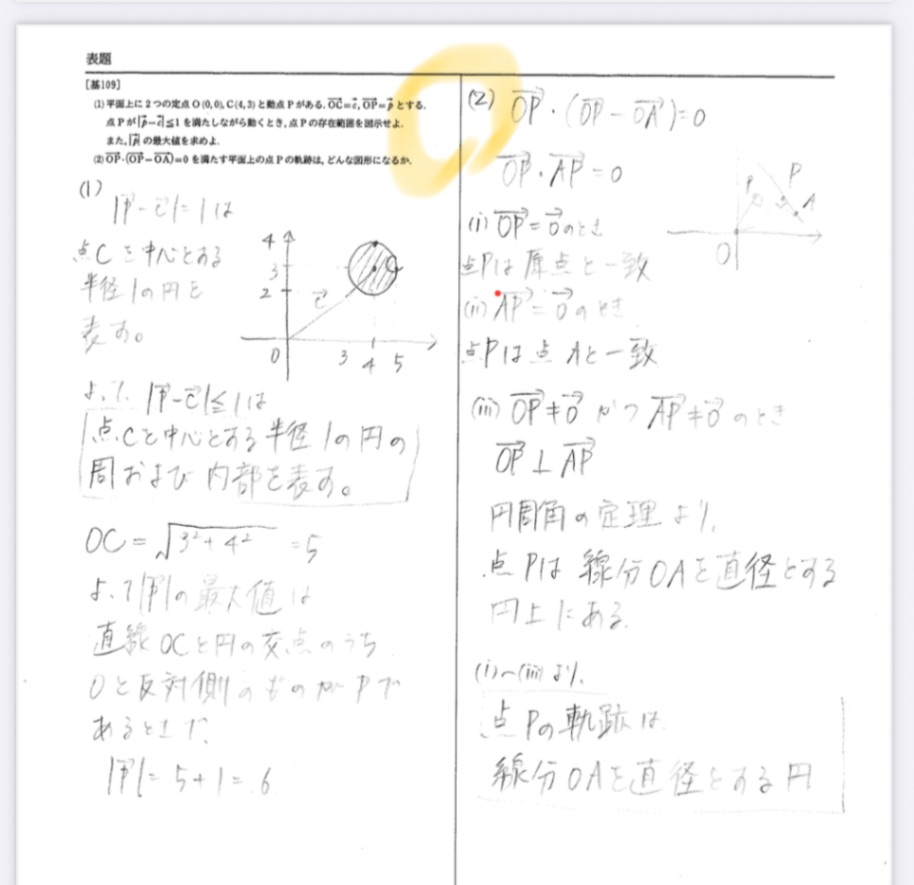 表題
[基109]
(1) 平面上に2つの定点O(0,0), C(4,3)と動点Pがある. OC=c, OP=p とする.
点Pが|p−c|≦1を満たしながら動くとき, 点Pの存在範囲を図示せよ.
また, |p|の最大値を求めよ.
(2) OP・(OP−OA)=0 を満たす平面上の点Pの軌跡は, どんな図形になるか.
(1)
|p−c|=1は
点Cを中心とする
半径1の円を
表す。
4
3
2
c
C
O
3 4 5
よって |p−c|≦1は
点Cを中心とする半径1の円の
周および内部を表す。
OC=√3²+4² =5
よって|p|の最大値は
直線OCと円の交点のうち
Oと反対側のものがPで
あるときで、
|p|=5+1=6
(2) OP・(OP−OA)=0
OP・AP=0
P
P
A
O
(i) OP=0のとき
点Pは原点と一致
(ii) AP=0のとき
点Pは点Aと一致
(iii) OP≠0 かつ AP≠0のとき
OP⊥AP
円周角の定理より,
点Pは線分OAを直径とする
円上にある.
(i)~(iii)より,
点Pの軌跡は
線分OAを直径とする円